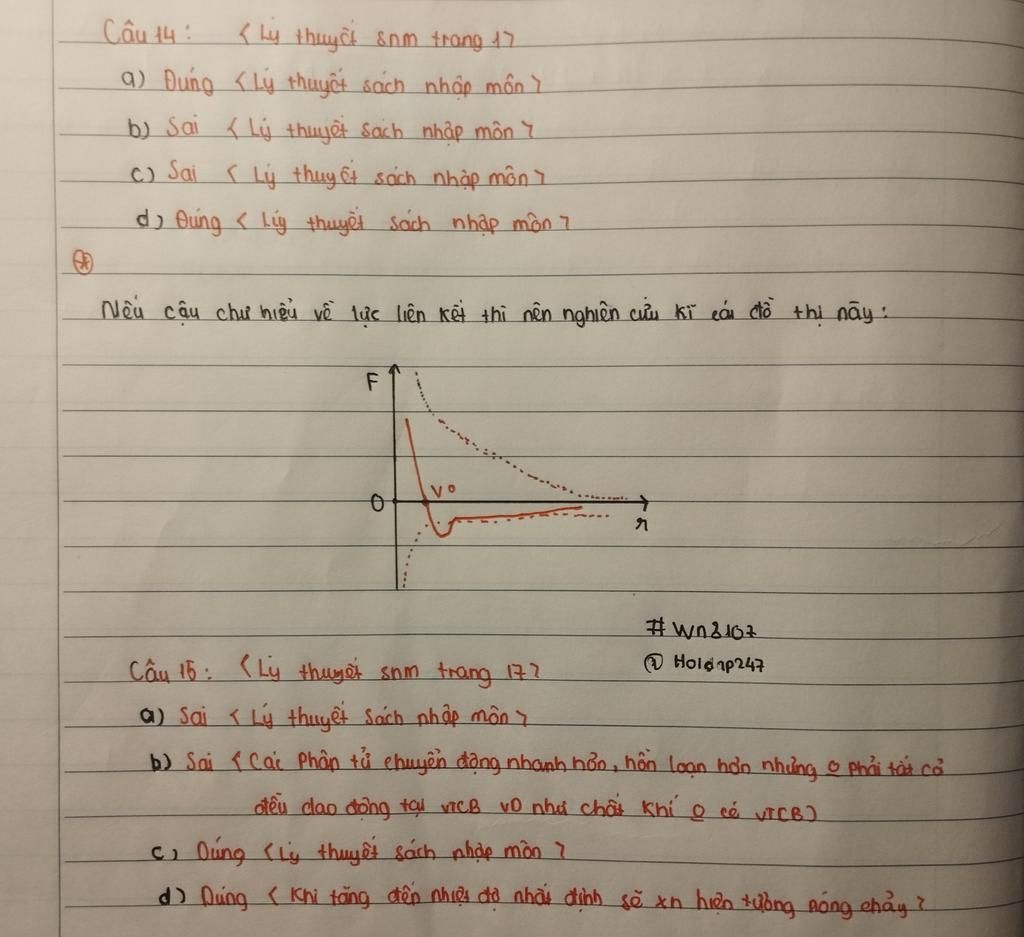 Câu 14: < Lý thuyết snm trang 17
a) Đúng < Lý thuyết sách nhập môn >
b) Sai < Lý thuyết sách nhập môn >
c) Sai < Lý thuyết sách nhập môn >
d) Đúng < Lý thuyết sách nhập môn >
Nếu cậu chư hiểu về lực liên kết thì nên nghiên cứu kĩ cái đồ thị này:
F
V0
0
r
#Wn8107
@Holdnp247
Câu 15: < Lý thuyết snm trang 17 >
a) Sai < Lý thuyết sách nhập môn >
b) Sai < Các phân tử chuyển động nhanh hơn, hỗn loạn hơn nhưng o phải tất cả
đều dao động tại VTCB VD như chất khí o có VTCB)
c) Đúng < Lý thuyết sách nhập môn >
d) Đúng < Khi tăng đến nhiệt độ nhất định sẽ xn hiện tượng nóng chảy >